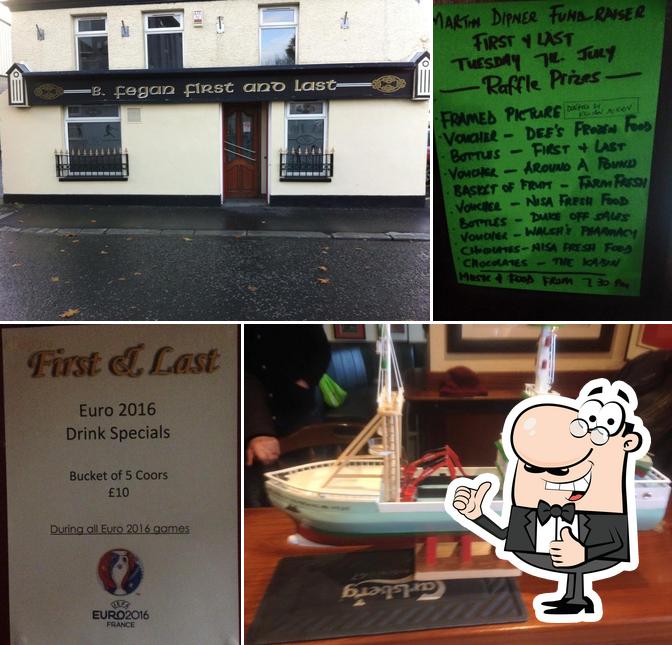 B. Fegan First and Last
MARTIN DIPNER FUND-RAISER
FIRST & LAST
TUESDAY 7th JULY
Raffle Prizes
FRAMED PICTURE
VOUCHER - DEE'S FROZEN FOOD
BOTTLES - FIRST & LAST
VOUCHER - AROUND A POUND
BASKET OF FRUIT - FARM FRESH
VOUCHER - NISA FRESH FOOD
BOTTLES - DUKE OFF SALES
VOUCHER - WALSH'S PHARMACY
CHOCOLATES - NISA FRESH FOOD
CHOCOLATES - THE KABIN
MUSIC & FOOD FROM 7.30 PM
First & Last
Euro 2016
Drink Specials
Bucket of 5 Coors
£10
During all Euro 2016 games
UEFA
EURO2016
FRANCE
Carlsberg